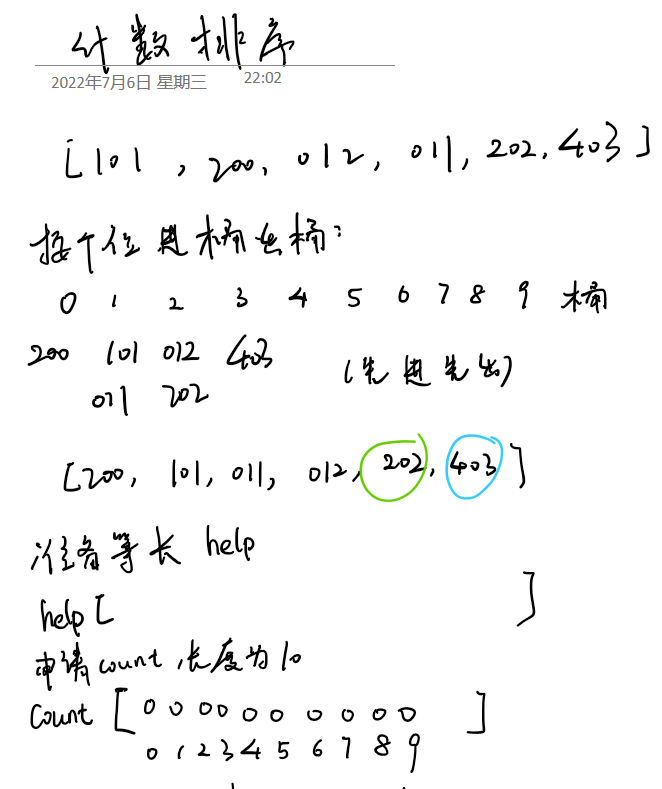 计数排序
2022年7月6日 星期三 22:02
[101, 200, 012, 011, 202, 403]
按个位进桶出桶:
0 1 2 3 4 5 6 7 8 9 桶
200 101 012 403
(先进先出)
011 202
[200, 101, 011, 012, 202, 403]
准备等长 help
help [ ]
申请count,长度为10
Count [0 0 0 0 0 0 0 0 0 0]
0 1 2 3 4 5 6 7 8 9